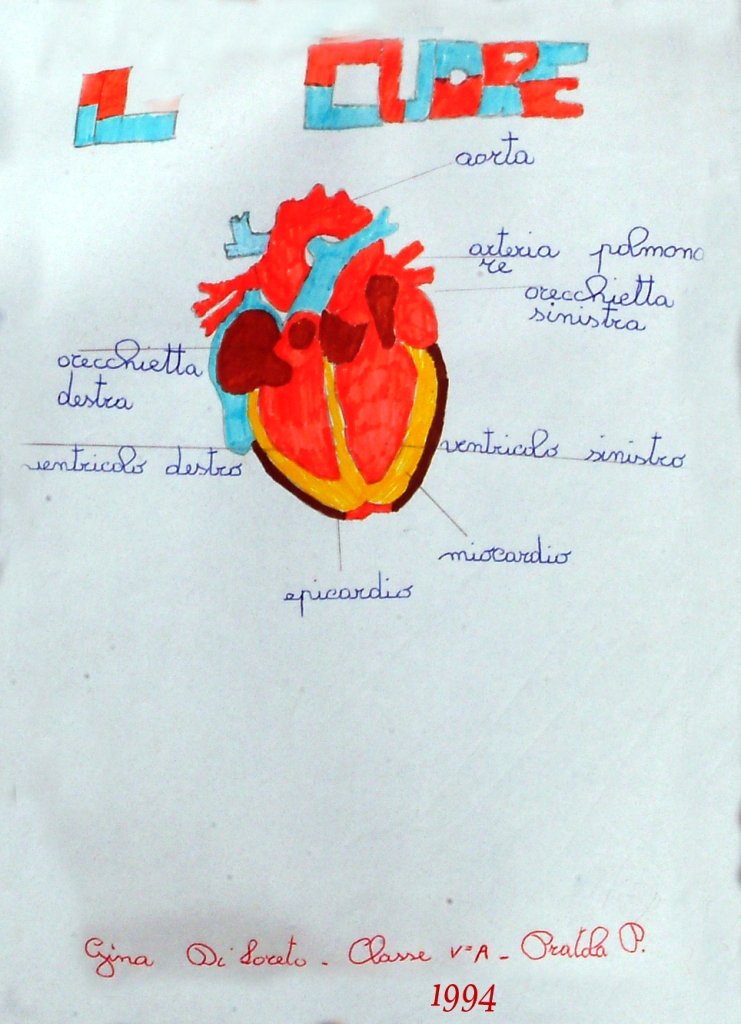 IL CUORE
aorta
arteria polmona
re
orecchietta
sinistra
orecchietta
destra
ventricolo destro
ventricolo sinistro
miocardio
epicardio
Gina Di Loreto - Classe Vª A - Pratola P.
1994